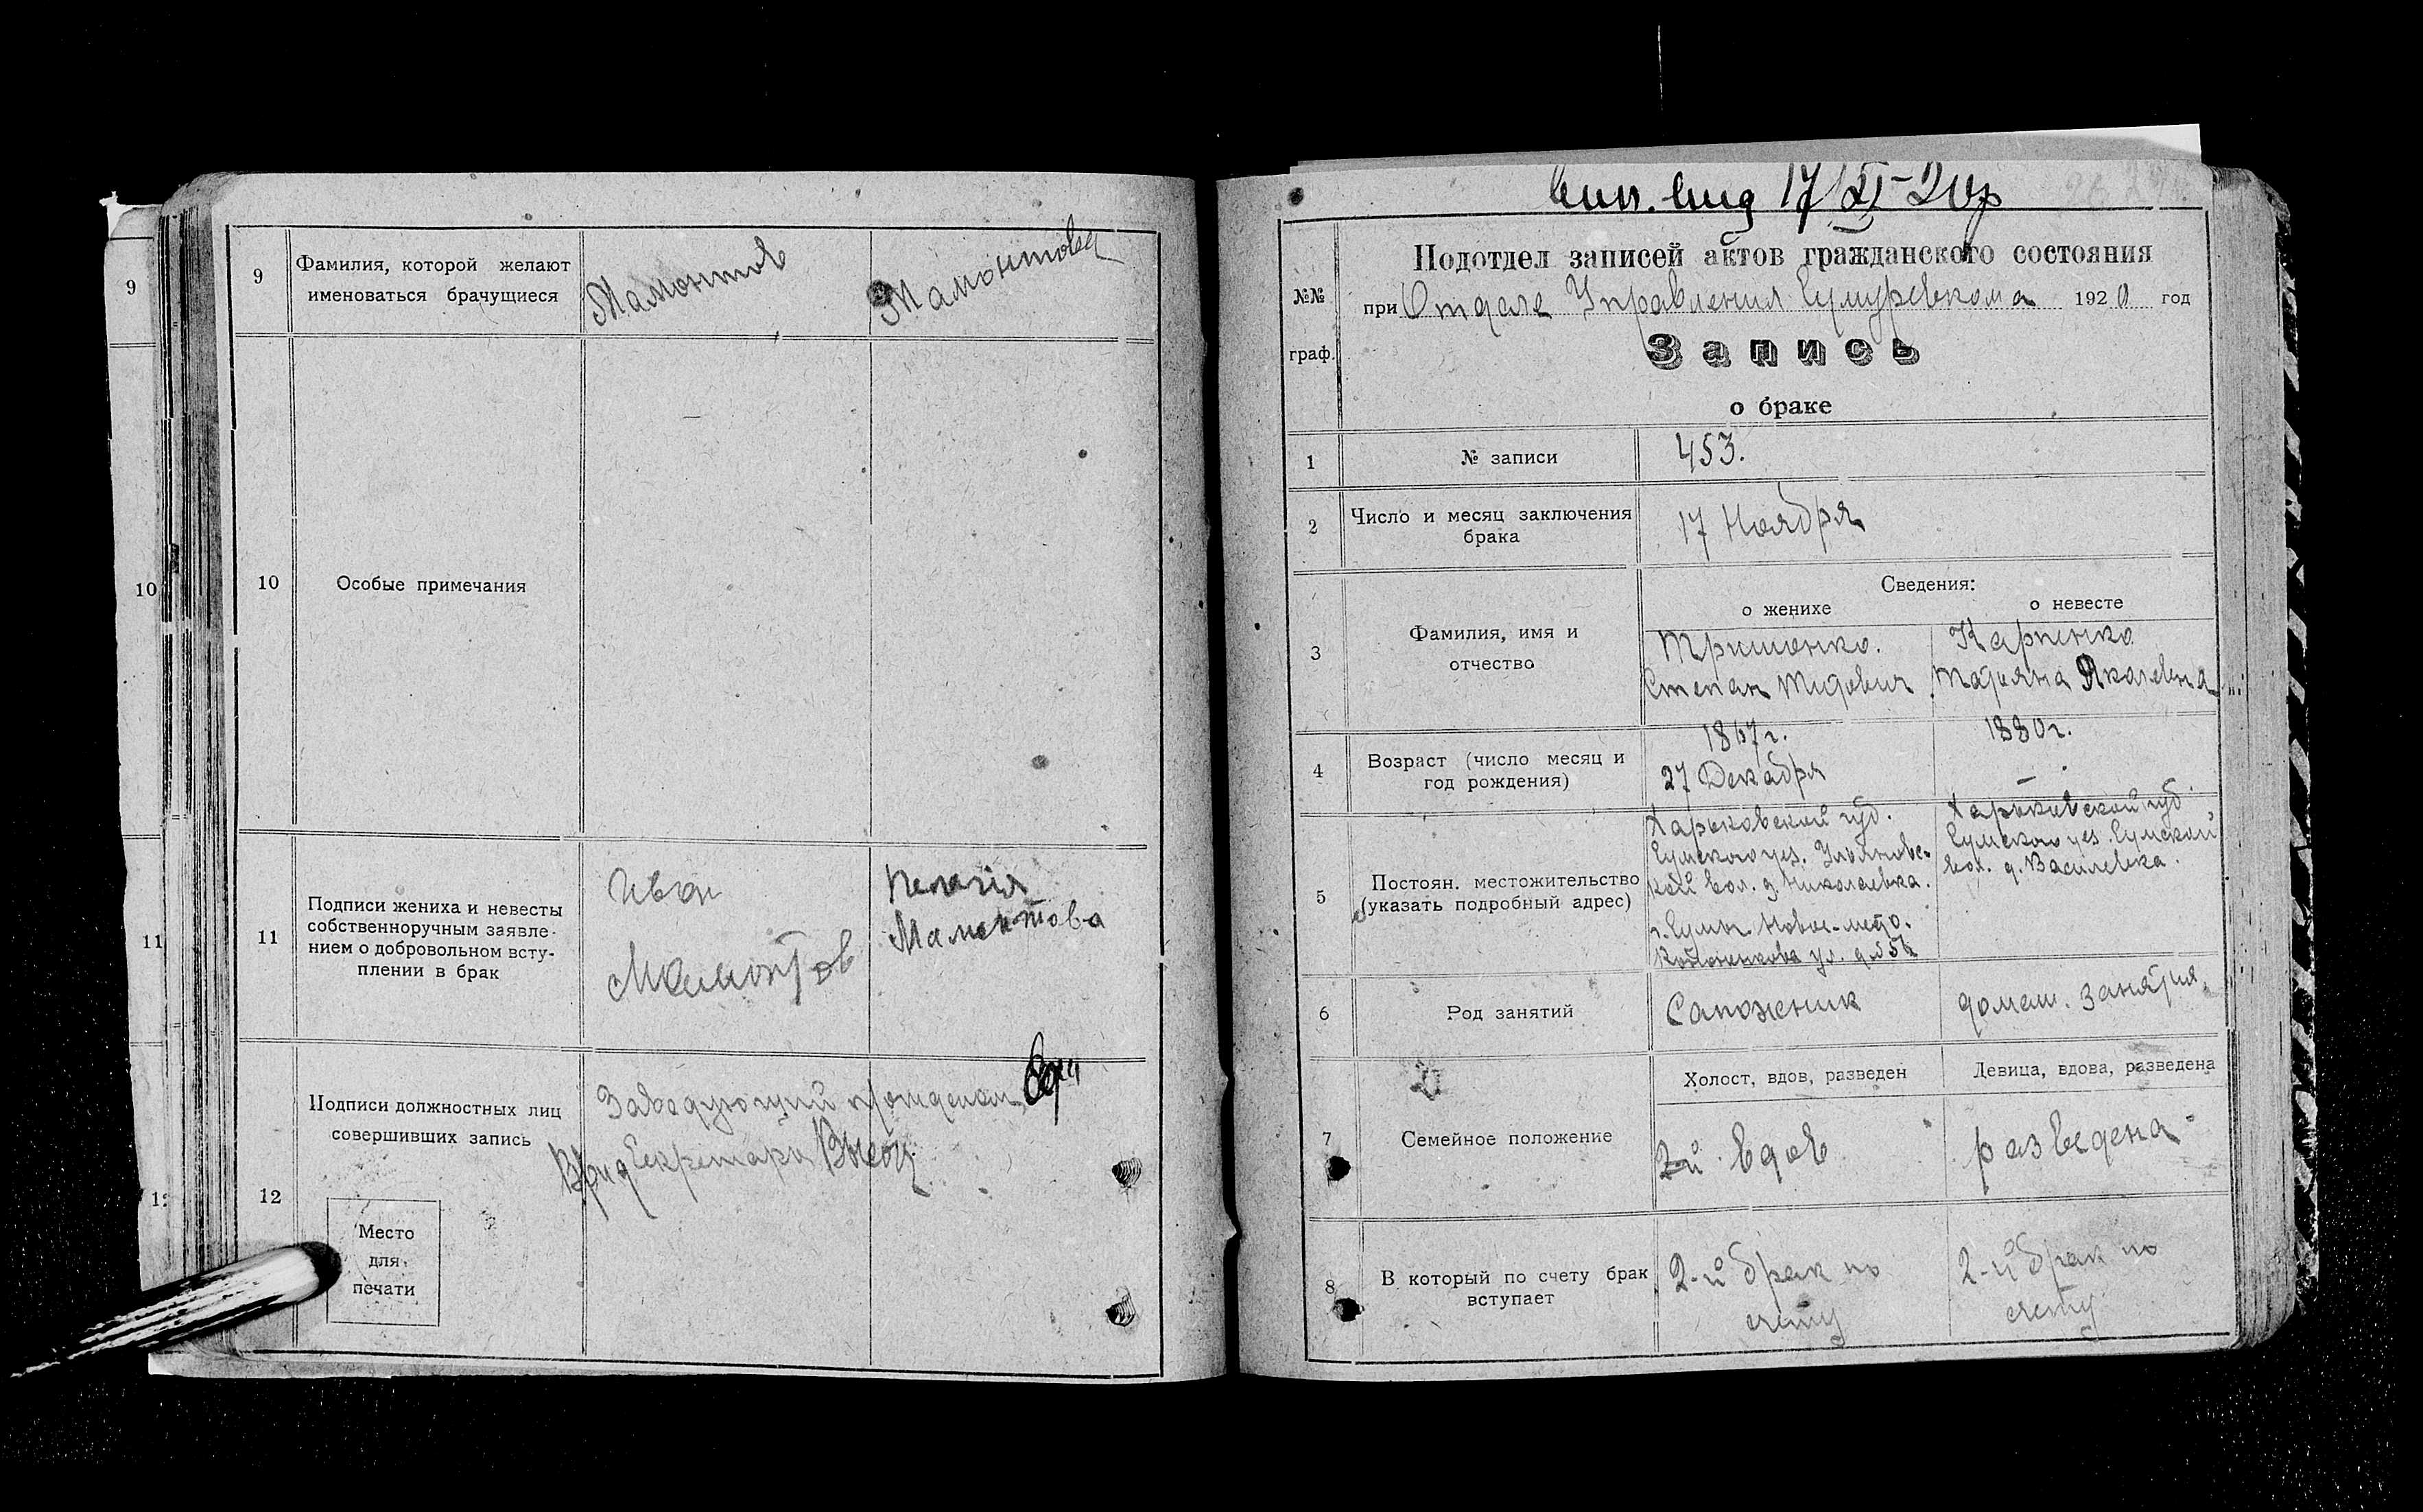 9
10
11
9
Фамилия, которой желают
именоваться брачущиеся
Мамонтов
Мамонтова
10
Особые примечания
11
Подписи жениха и невесты
собственноручным заявле-
нием о добровольном всту-
плении в брак
Иван
Мамонтов
Пелагия
Мамонтова
12
Подписи должностных лиц
совершивших запись
Заведующий п/отделом
Врид Секретаря
Место
для
печати
17/XI-20г
№№
граф.
Подотдел записей актов гражданского состояния
при Отделе Управления Сумуревкома 1920 год
Запись
о браке
1
№ записи
453.
2
Число и месяц заключения
брака
17 Ноября
Сведения:
о женихе
о невесте
3
Фамилия, имя и
отчество
Тришенко.
Степан Титович
Карпенко
Татьяна Яковлевна
4
Возраст (число месяц и
год рождения)
1867г.
27 Декабря
1880г.
—
5
Постоян. местожительство
(указать подробный адрес)
Харьковской губ.
Сумского уез. Ульяновс-
кой вол. д. Николаевка.
г. Сумы Новое-место.
ул. д. №
Харьковской губ.
Сумского уез. Сумской
вол. д. Василевка.
6
Род занятий
Сапожник
домаш. занятия.
7
Семейное положение
Холост, вдов, разведен
Девица, вдова, разведена
вдов
разведена
8
В который по счету брак
вступает
2-й брак по
счету
2-й брак по
счету